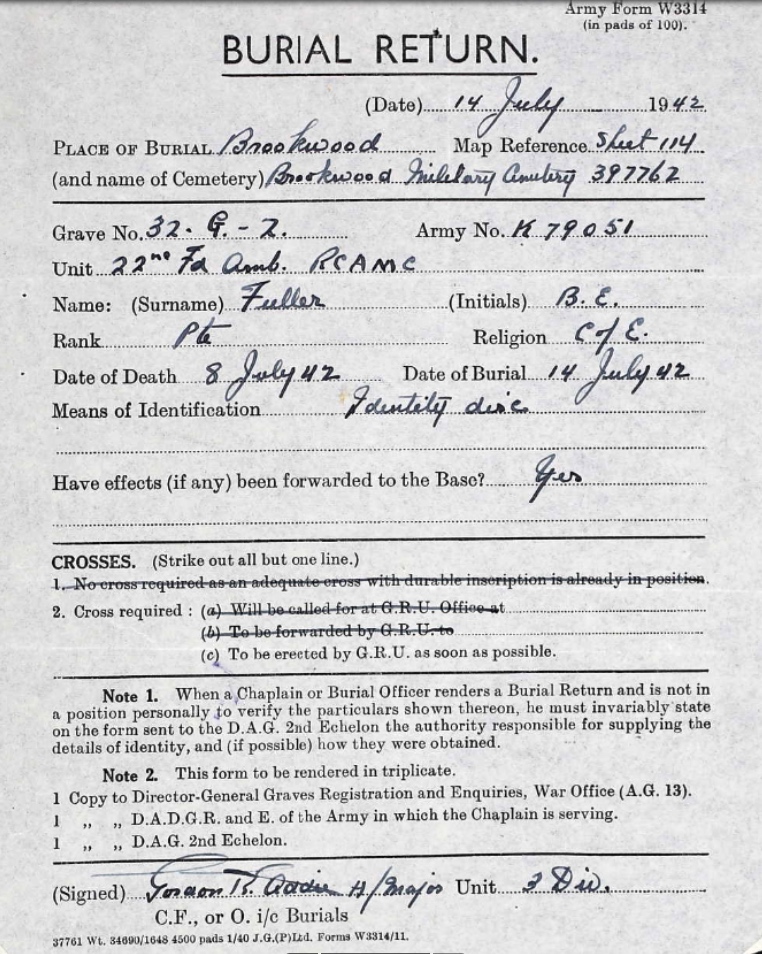 Army Form W3314
(in pads of 100).
BURIAL RETURN.
(Date) 14 July 1942
PLACE OF BURIAL Brookwood Map Reference Sheet 114
(and name of Cemetery) Brookwood Military Cemetery 397762
Grave No. 32. G. - 2. Army No. K 79051
Unit 22nd Fd Amb. RCAMC
Name: (Surname) Fuller (Initials) B. E.
Rank Pte Religion C of E.
Date of Death 8 July 42 Date of Burial 14 July 42
Means of Identification Identity disc
Have effects (if any) been forwarded to the Base? Yes
CROSSES. (Strike out all but one line.)
1. No cross required as an adequate cross with durable inscription is already in position.
2. Cross required : (a) Will be called for at G.R.U. Office at
(b) To be forwarded by G.R.U. to
(c) To be erected by G.R.U. as soon as possible.
Note 1. When a Chaplain or Burial Officer renders a Burial Return and is not in
a position personally to verify the particulars shown thereon, he must invariably state
on the form sent to the D.A.G. 2nd Echelon the authority responsible for supplying the
details of identity, and (if possible) how they were obtained.
Note 2. This form to be rendered in triplicate.
1 Copy to Director-General Graves Registration and Enquiries, War Office (A.G. 13).
1 ,, ,, D.A.D.G.R. and E. of the Army in which the Chaplain is serving.
1 ,, ,, D.A.G. 2nd Echelon.
(Signed) Gordon R. Addie H/Major Unit 3 Div.
C.F., or O. i/c Burials
37761 Wt. 34690/1648 4500 pads 1/40 J.G.(P)Ltd. Forms W3314/11.